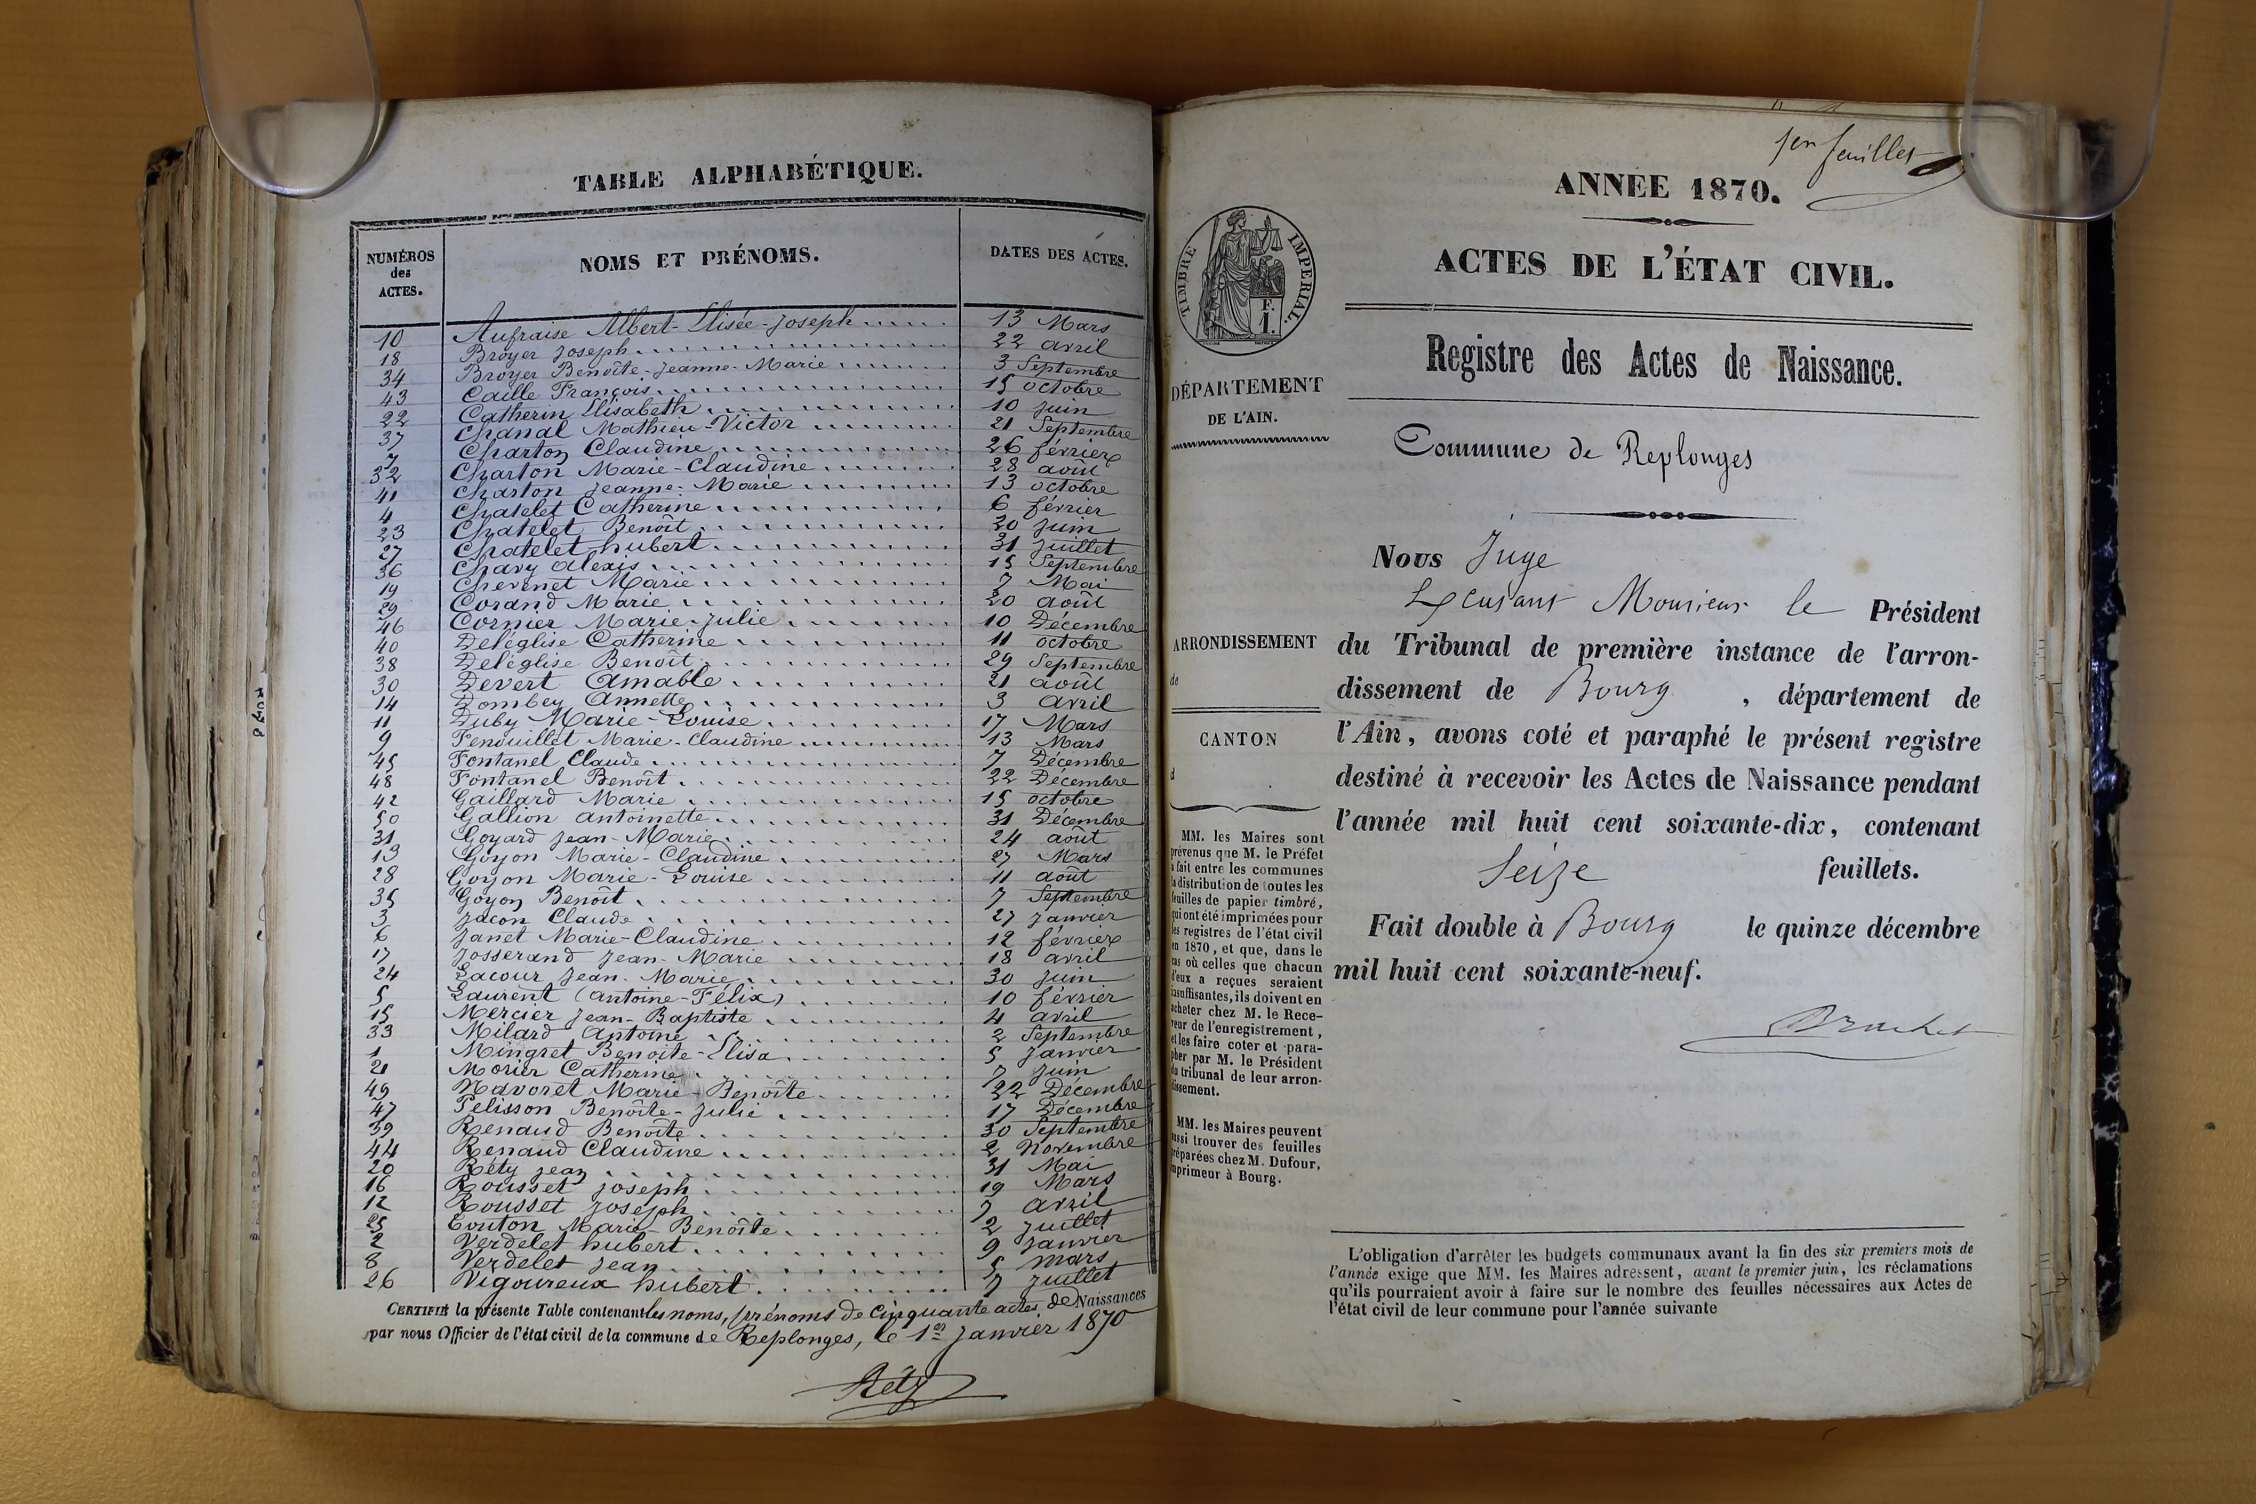 TABLE ALPHABÉTIQUE.
NUMÉROS des ACTES. NOMS ET PRÉNOMS. DATES DES ACTES.
10 Aufraise Albert-Elisée-Joseph 13 Mars
18 Broyer Joseph 22 avril
34 Broyer Benoîte-Jeanne-Marie 3 Septembre
43 Caille François 15 octobre
22 Catherin Elisabeth 10 juin
37 Chanal Mathieu-Victor 21 Septembre
7 Charton Claudine 26 février
32 Charton Marie-Claudine 28 août
41 Charton Jeanne-Marie 13 octobre
4 Chatelet Catherine 6 février
23 Chatelet Benoît 20 juin
27 Chatelet hubert 31 juillet
36 Chavy Alexis 15 Septembre
19 Chevenet Marie 7 Mai
29 Corand Marie 20 août
46 Cornier Marie-Julie 10 Décembre
40 Deléglise Catherine 11 octobre
38 Deléglise Benoît 29 Septembre
30 Devert Amable 21 août
14 Dombey Annette 3 avril
11 Duby Marie-Louise 17 Mars
9 Fenouillet Marie-Claudine 13 Mars
45 Fontanel Claude 7 Décembre
48 Fontanel Benoît 22 Décembre
42 Gaillard Marie 15 octobre
50 Gallion Antoinette 31 Décembre
31 Goyard Jean-Marie 24 août
13 Goyon Marie-Claudine 27 Mars
28 Goyon Marie-Louise 11 août
35 Goyon Benoît 7 Septembre
3 Jacon Claude 27 janvier
6 Janet Marie-Claudine 12 février
17 Josserand Jean-Marie 18 avril
24 Lacour Jean-Marie 30 juin
5 Laurent (Antoine-Félix) 10 février
15 Mercier Jean-Baptiste 4 avril
33 Milard Antoine 2 Septembre
1 Mingret Benoite-Elisa 5 janvier
21 Morier Catherine 7 juin
49 Navoret Marie-Benoîte 22 Décembre
47 Pelisson Benoîte-Julie 17 Décembre
39 Renaud Benoîte 30 Septembre
44 Renaud Claudine 2 Novembre
20 Réty Jean 31 Mai
16 Rousset Joseph 19 Mars
12 Rousset Joseph 7 avril
25 Touton Marie-Benoîte 2 juillet
2 Verdelet hubert 9 janvier
8 Verdelet Jean 5 mars
26 Vigoureux hubert 7 juillet
CERTIFIÉ la présente Table contenant les noms, prénoms de cinquante actes de Naissances
par nous Officier de l'état civil de la commune de Replonges, le 1er Janvier 1870
Réty
1er feuillet
ANNÉE 1870.
ACTES DE L'ÉTAT CIVIL.
Registre des Actes de Naissance.
Commune de Replonges
TIMBRE IMPÉRIAL.
F.
1.
DÉPARTEMENT
DE L'AIN.
ARRONDISSEMENT
de
CANTON
d
MM. les Maires sont
prévenus que M. le Préfet
a fait entre les communes
la distribution de toutes les
feuilles de papier timbré,
qui ont été imprimées pour
les registres de l'état civil
en 1870, et que, dans le
cas où celles que chacun
d'eux a reçues seraient
insuffisantes, ils doivent en
acheter chez M. le Rece-
veur de l'enregistrement,
et les faire coter et para-
pher par M. le Président
du tribunal de leur arron-
dissement.
MM. les Maires peuvent
aussi trouver des feuilles
préparées chez M. Dufour,
imprimeur à Bourg.
Nous Juge
Excusant Monsieur le Président
du Tribunal de première instance de l'arron-
dissement de Bourg , département de
l'Ain, avons coté et paraphé le présent registre
destiné à recevoir les Actes de Naissance pendant
l'année mil huit cent soixante-dix, contenant
Seize feuillets.
Fait double à Bourg le quinze décembre
mil huit cent soixante-neuf.
L'obligation d'arrêter les budgets communaux avant la fin des six premiers mois de
l'année exige que MM. les Maires adressent, avant le premier juin, les réclamations
qu'ils pourraient avoir à faire sur le nombre des feuilles nécessaires aux Actes de
l'état civil de leur commune pour l'année suivante